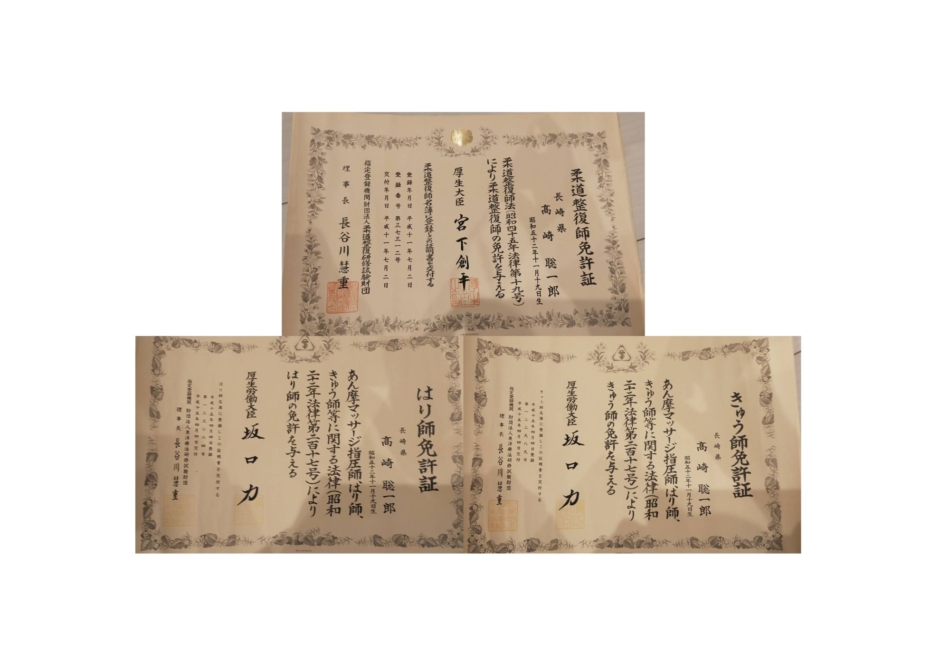 柔道整復師免許証
長崎県
高崎聡一郎
昭和五十二年十一月十九日生
柔道整復師法(昭和四十五年法律第十九号)
により柔道整復師の免許を与える
厚生大臣 宮下創平
柔道整復師名簿に登録した証明書を交付する
登録年月日 平成十一年七月二日
登録番号 第三七三一二号
交付年月日 平成十一年七月二日
指定登録機関財団法人柔道整復研修試験財団
理事長 長谷川慧重
はり師免許証
長崎県
高崎聡一郎
昭和五十二年十一月十九日生
あん摩マッサージ指圧師、はり師、
きゅう師等に関する法律(昭和
二十二年法律第二百十七号)により
はり師の免許を与える
厚生労働大臣 坂口力
理事長 長谷川慧重
きゅう師免許証
長崎県
高崎聡一郎
昭和五十二年十一月十九日生
あん摩マッサージ指圧師、はり師、
きゅう師等に関する法律(昭和
二十二年法律第二百十七号)により
きゅう師の免許を与える
厚生労働大臣 坂口力
理事長 長谷川慧重